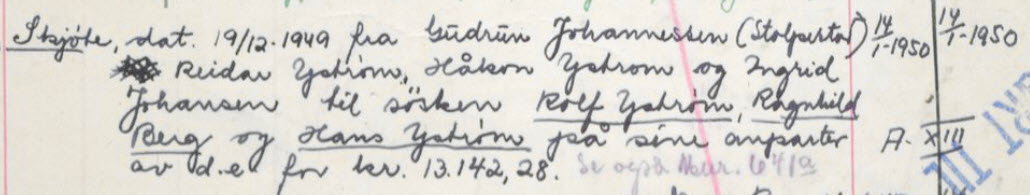 Skjøte, dat. 19/12-1949 fra Gudrun Johannessen (Stolpestad) 14/1-1950 14/1-1950
Reidar Ystrøm, Håkon Ystrøm og Ingrid
Johansen til søsken Rolf Ystrøm, Ragnhild
Berg og Hans Ystrøm på sine anparter A- XIII
av d.e for kr. 13.142,28. Se også